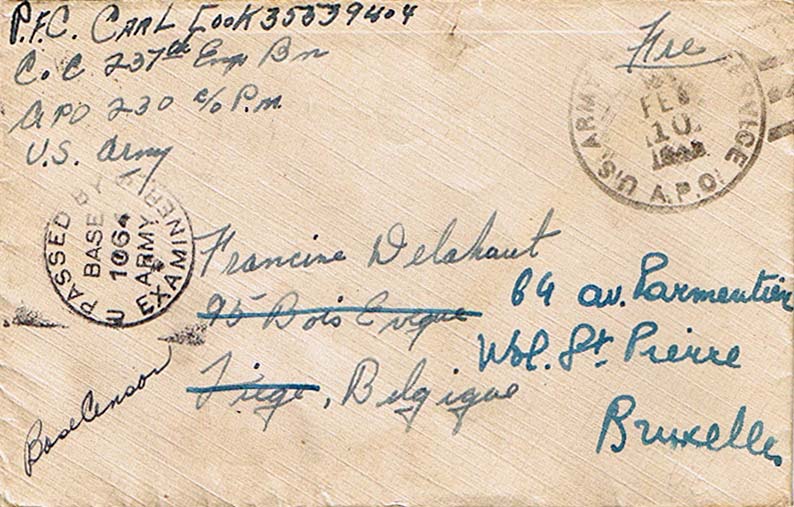 P.F.C. CARL COOK 35539404
Co C 237th Eng Bn
APO 230 c/o P.M
U.S. Army
Free
U.S. ARMY SERVICE
FEB
10
A.P.O.
PASSED BY
BASE
1064
ARMY
EXAMINER
Francine Delahaut
95 Bois Evêque
Liège, Belgique
64 av. Parmentier
Wol. St. Pierre
Bruxelles
Base Censor